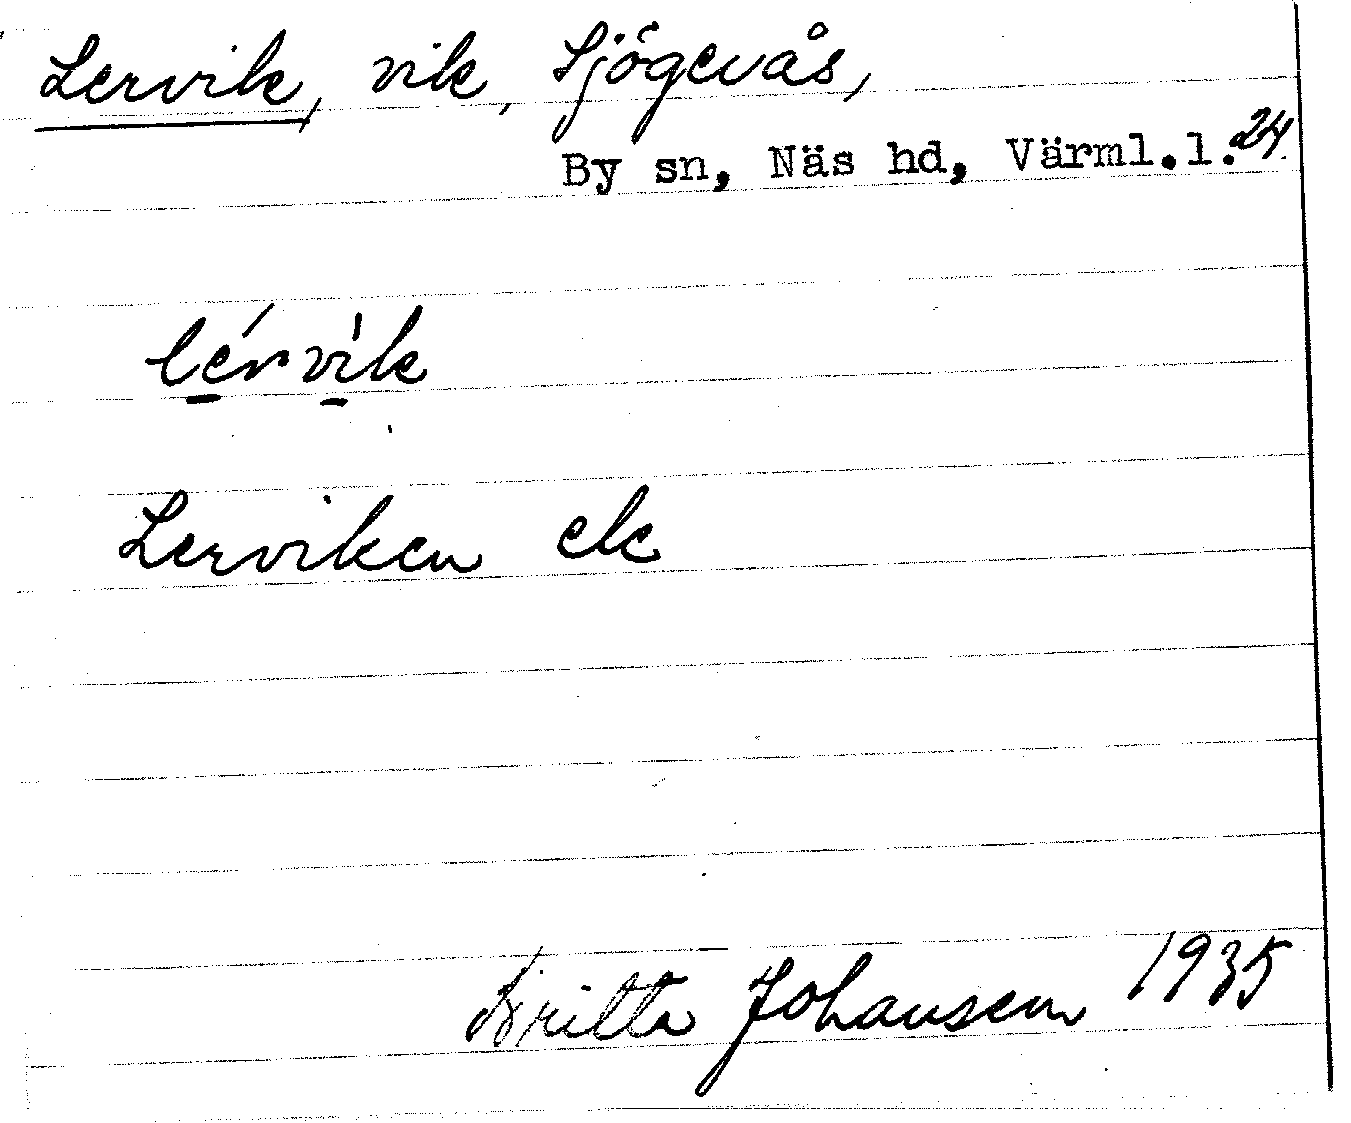 Lervik, vik, Sjögerås,
By sn, Näs hd, Värml.l. 24.
lérvìk
Lerviken ek
Britta Johansen 1935